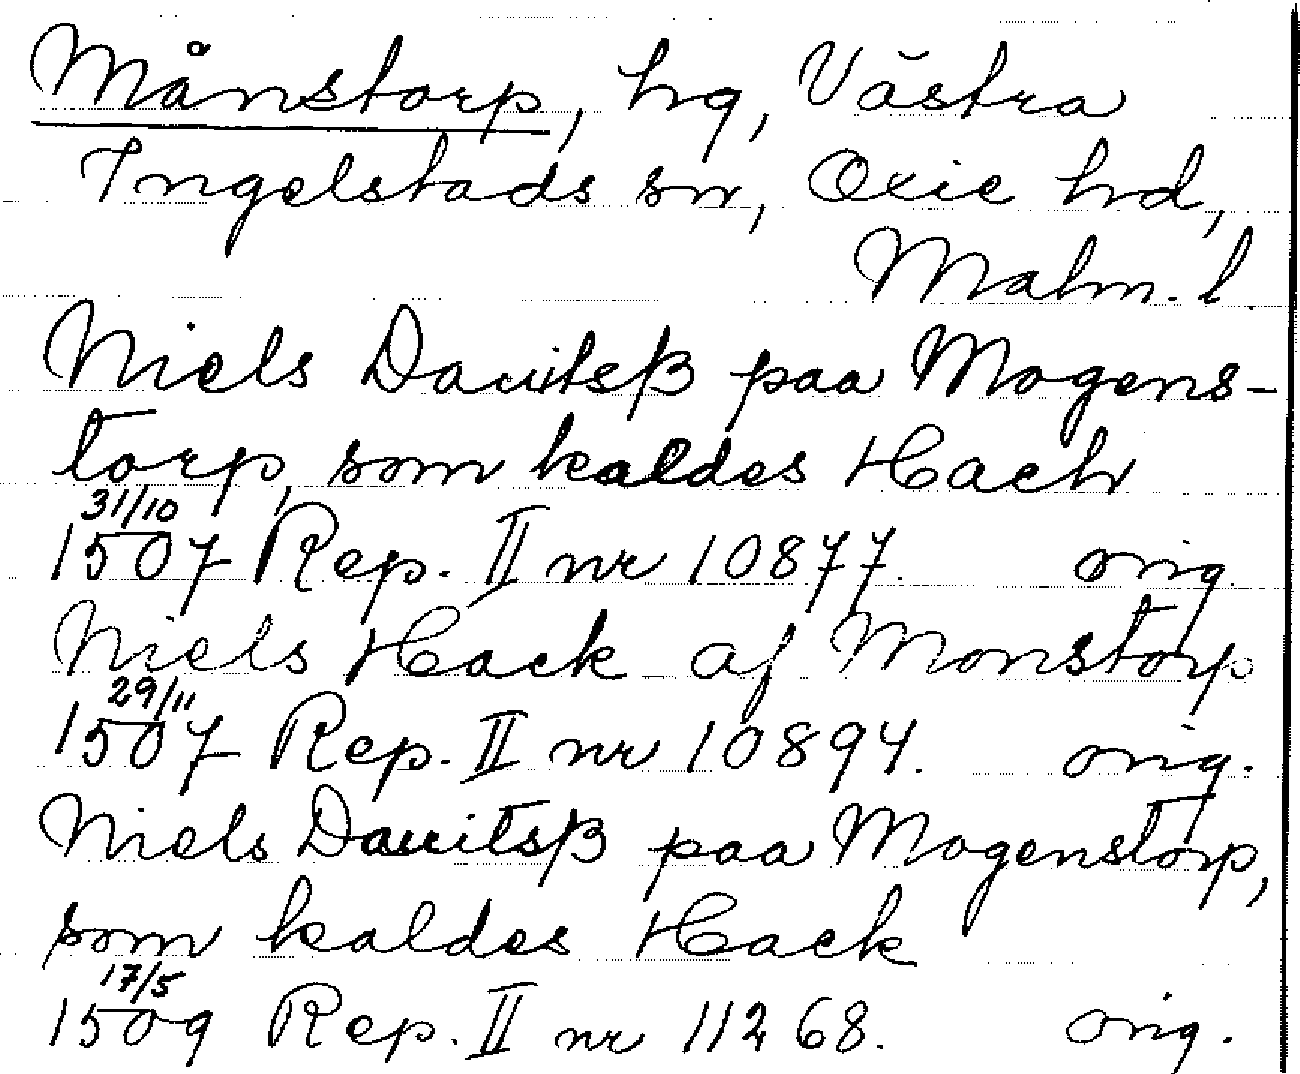 Månstorp, hg, Västra
Ingelstads sn, Oxie hd,
Malm. l.
Niels Dauitsß paa Mogens-
torp, som kaldes Hach
31/10
1507 Rep. II nr 10877. orig.
Niels Hack af Monstorp
29/11
1507 Rep. II nr 10894. orig.
Niels Dauitsß paa Mogenstorp,
som kaldes Hack
17/5
1509 Rep. II nr 11268. orig.